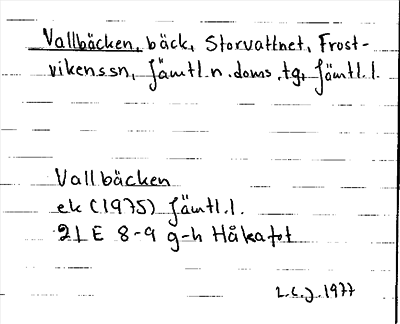 Vallbäcken, bäck, Storvattnet, Frost-
vikens sn, Jämtl. n. doms. tg, Jämtl. l.
Vallbäcken
ek (1975) Jämtl. l.
21 E 8-9 g-h Håkafot
L.E.J. 1977